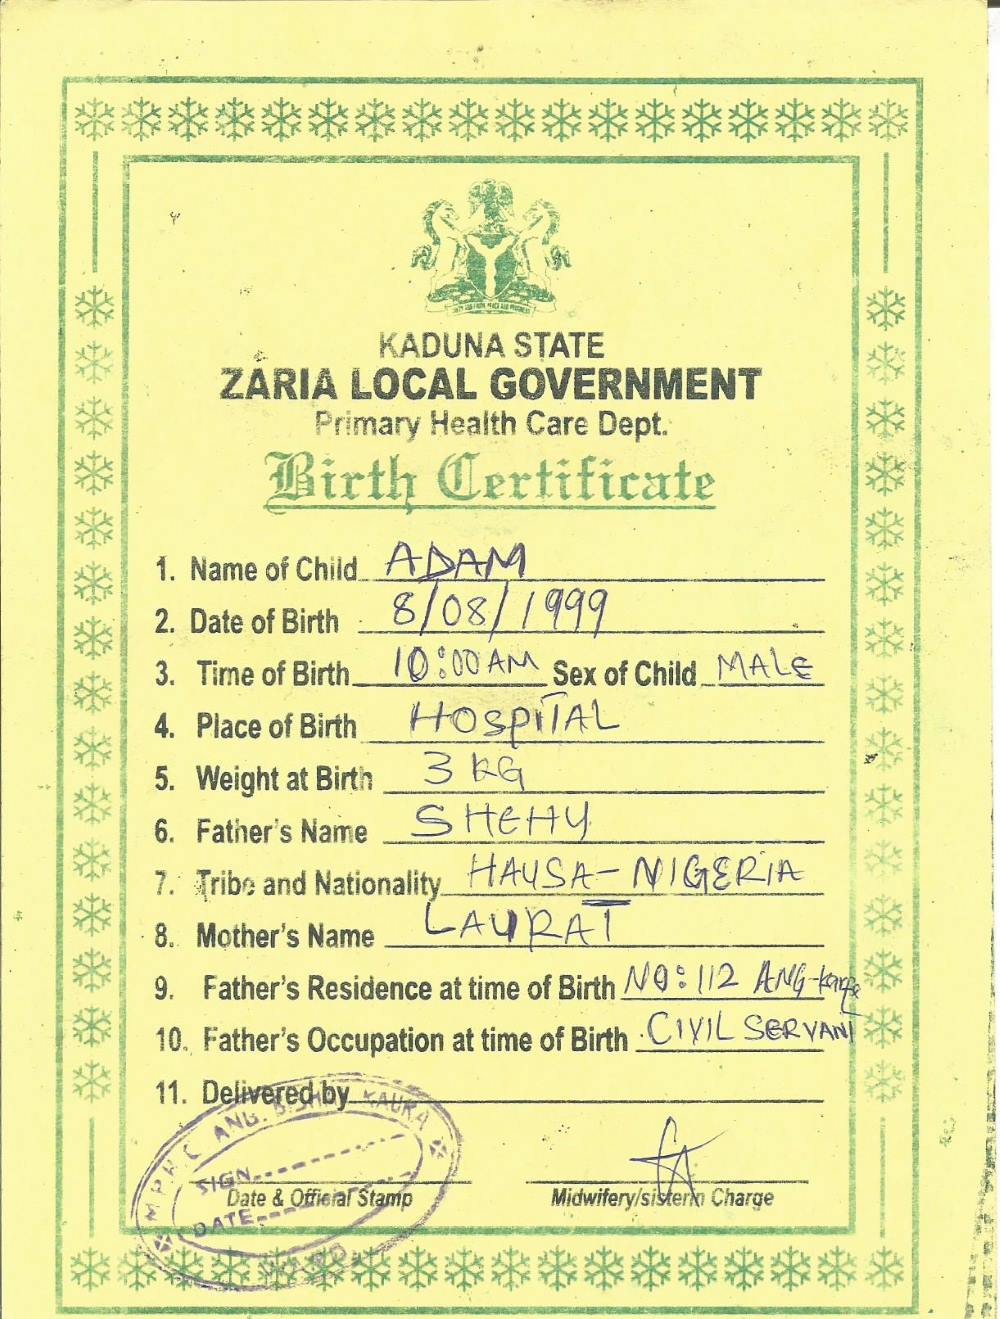 KADUNA STATE
ZARIA LOCAL GOVERNMENT
Primary Health Care Dept.
Birth Certificate
1. Name of Child ADAM
2. Date of Birth 8/08/1999
3. Time of Birth 10:00AM Sex of Child MALE
4. Place of Birth HOSPITAL
5. Weight at Birth 3 KG
6. Father's Name SHEHU
7. Tribe and Nationality HAUSA-NIGERIA
8. Mother's Name LAURAT
9. Father's Residence at time of Birth NO: 112 ANG-
10. Father's Occupation at time of Birth CIVIL SERVANT
11. Delivered by
M.P.H.C ANG. KAURA
SIGN
DATE
WARD
Date & Official Stamp Midwifery/sister in Charge